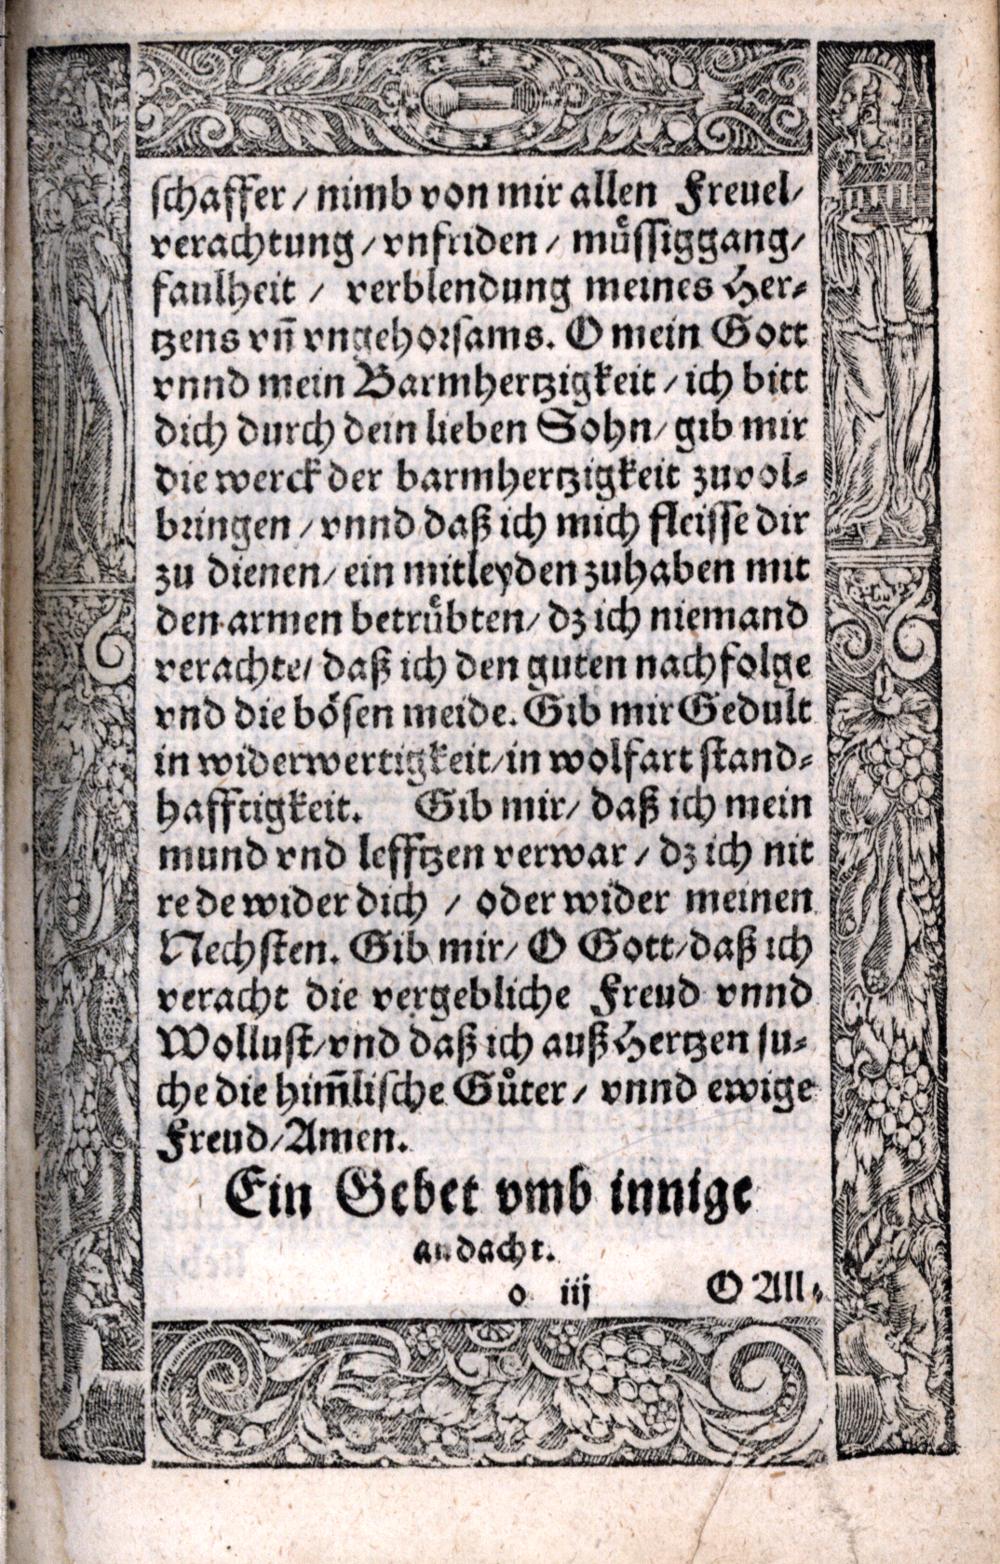 schaffer / nimb von mir allen Freuel/
verachtung / vnfriden / muͤssiggang/
faulheit / verblendung meines Her⸗
tzens vn̄ vngehorsams. O mein Gott
vnnd mein Barmhertzigkeit / ich bitt
dich durch dein lieben Sohn/ gib mir
die werck der barmhertzigkeit zuvol⸗
bringen / vnnd daß ich mich fleisse dir
zu dienen/ ein mitleyden zuhaben mit
den armen betruͤbten/ dz ich niemand
verachte/ daß ich den guten nachfolge
vnd die boͤsen meide. Gib mir Gedult
in widerwertigkeit/in wolfart stand⸗
hafftigkeit. Gib mir/ daß ich mein
mund vnd lefftzen verwar / dz ich nit
rede wider dich / oder wider meinen
Nechsten. Gib mir/ O Gott/daß ich
veracht die vergebliche Freud vnnd
Wollust/vnd daß ich auß Hertzen su⸗
che die him̄lische Guͤter / vnnd ewige
Freud/Amen.
Ein Gebet vmb innige
andacht.
o iij O All⸗